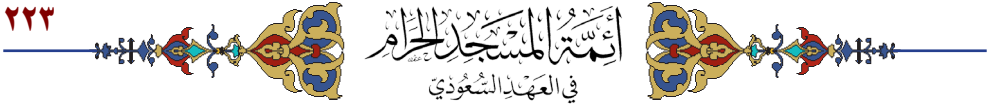 ٢٢٣
أَئِمَّةُ المَسْجِدِ الحَرَامِ
في العَهْدِ السُّعُودِيِّ